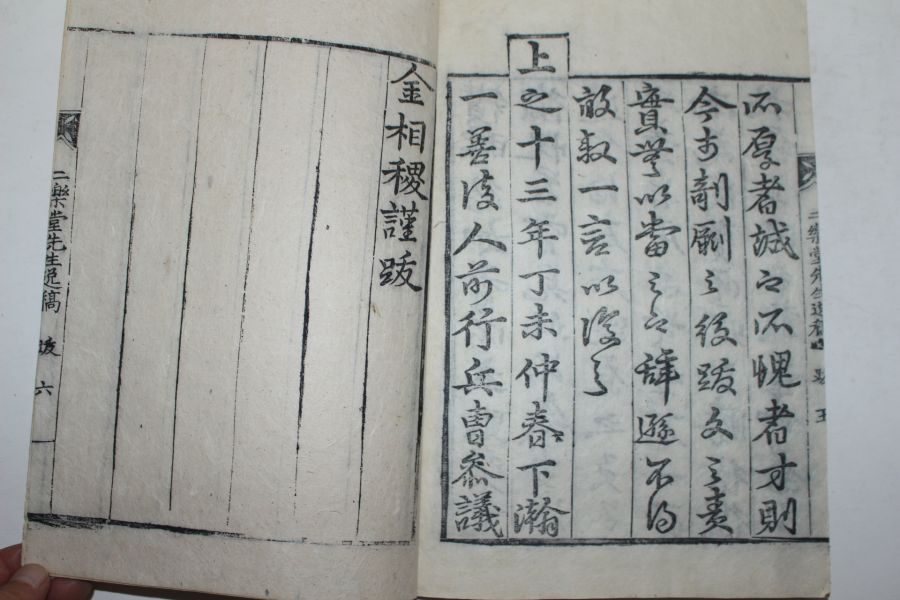 所厚者誠也所愧者才則
今於剞劂之後跋文之責
實無以當之也辭遜不得
敢叙一言以復之
上之十三年丁未仲春下瀚
一善後人前行兵曹參議
金相稷謹跋
二樂堂先生逸稿 跋 五
二樂堂先生逸稿 跋 六